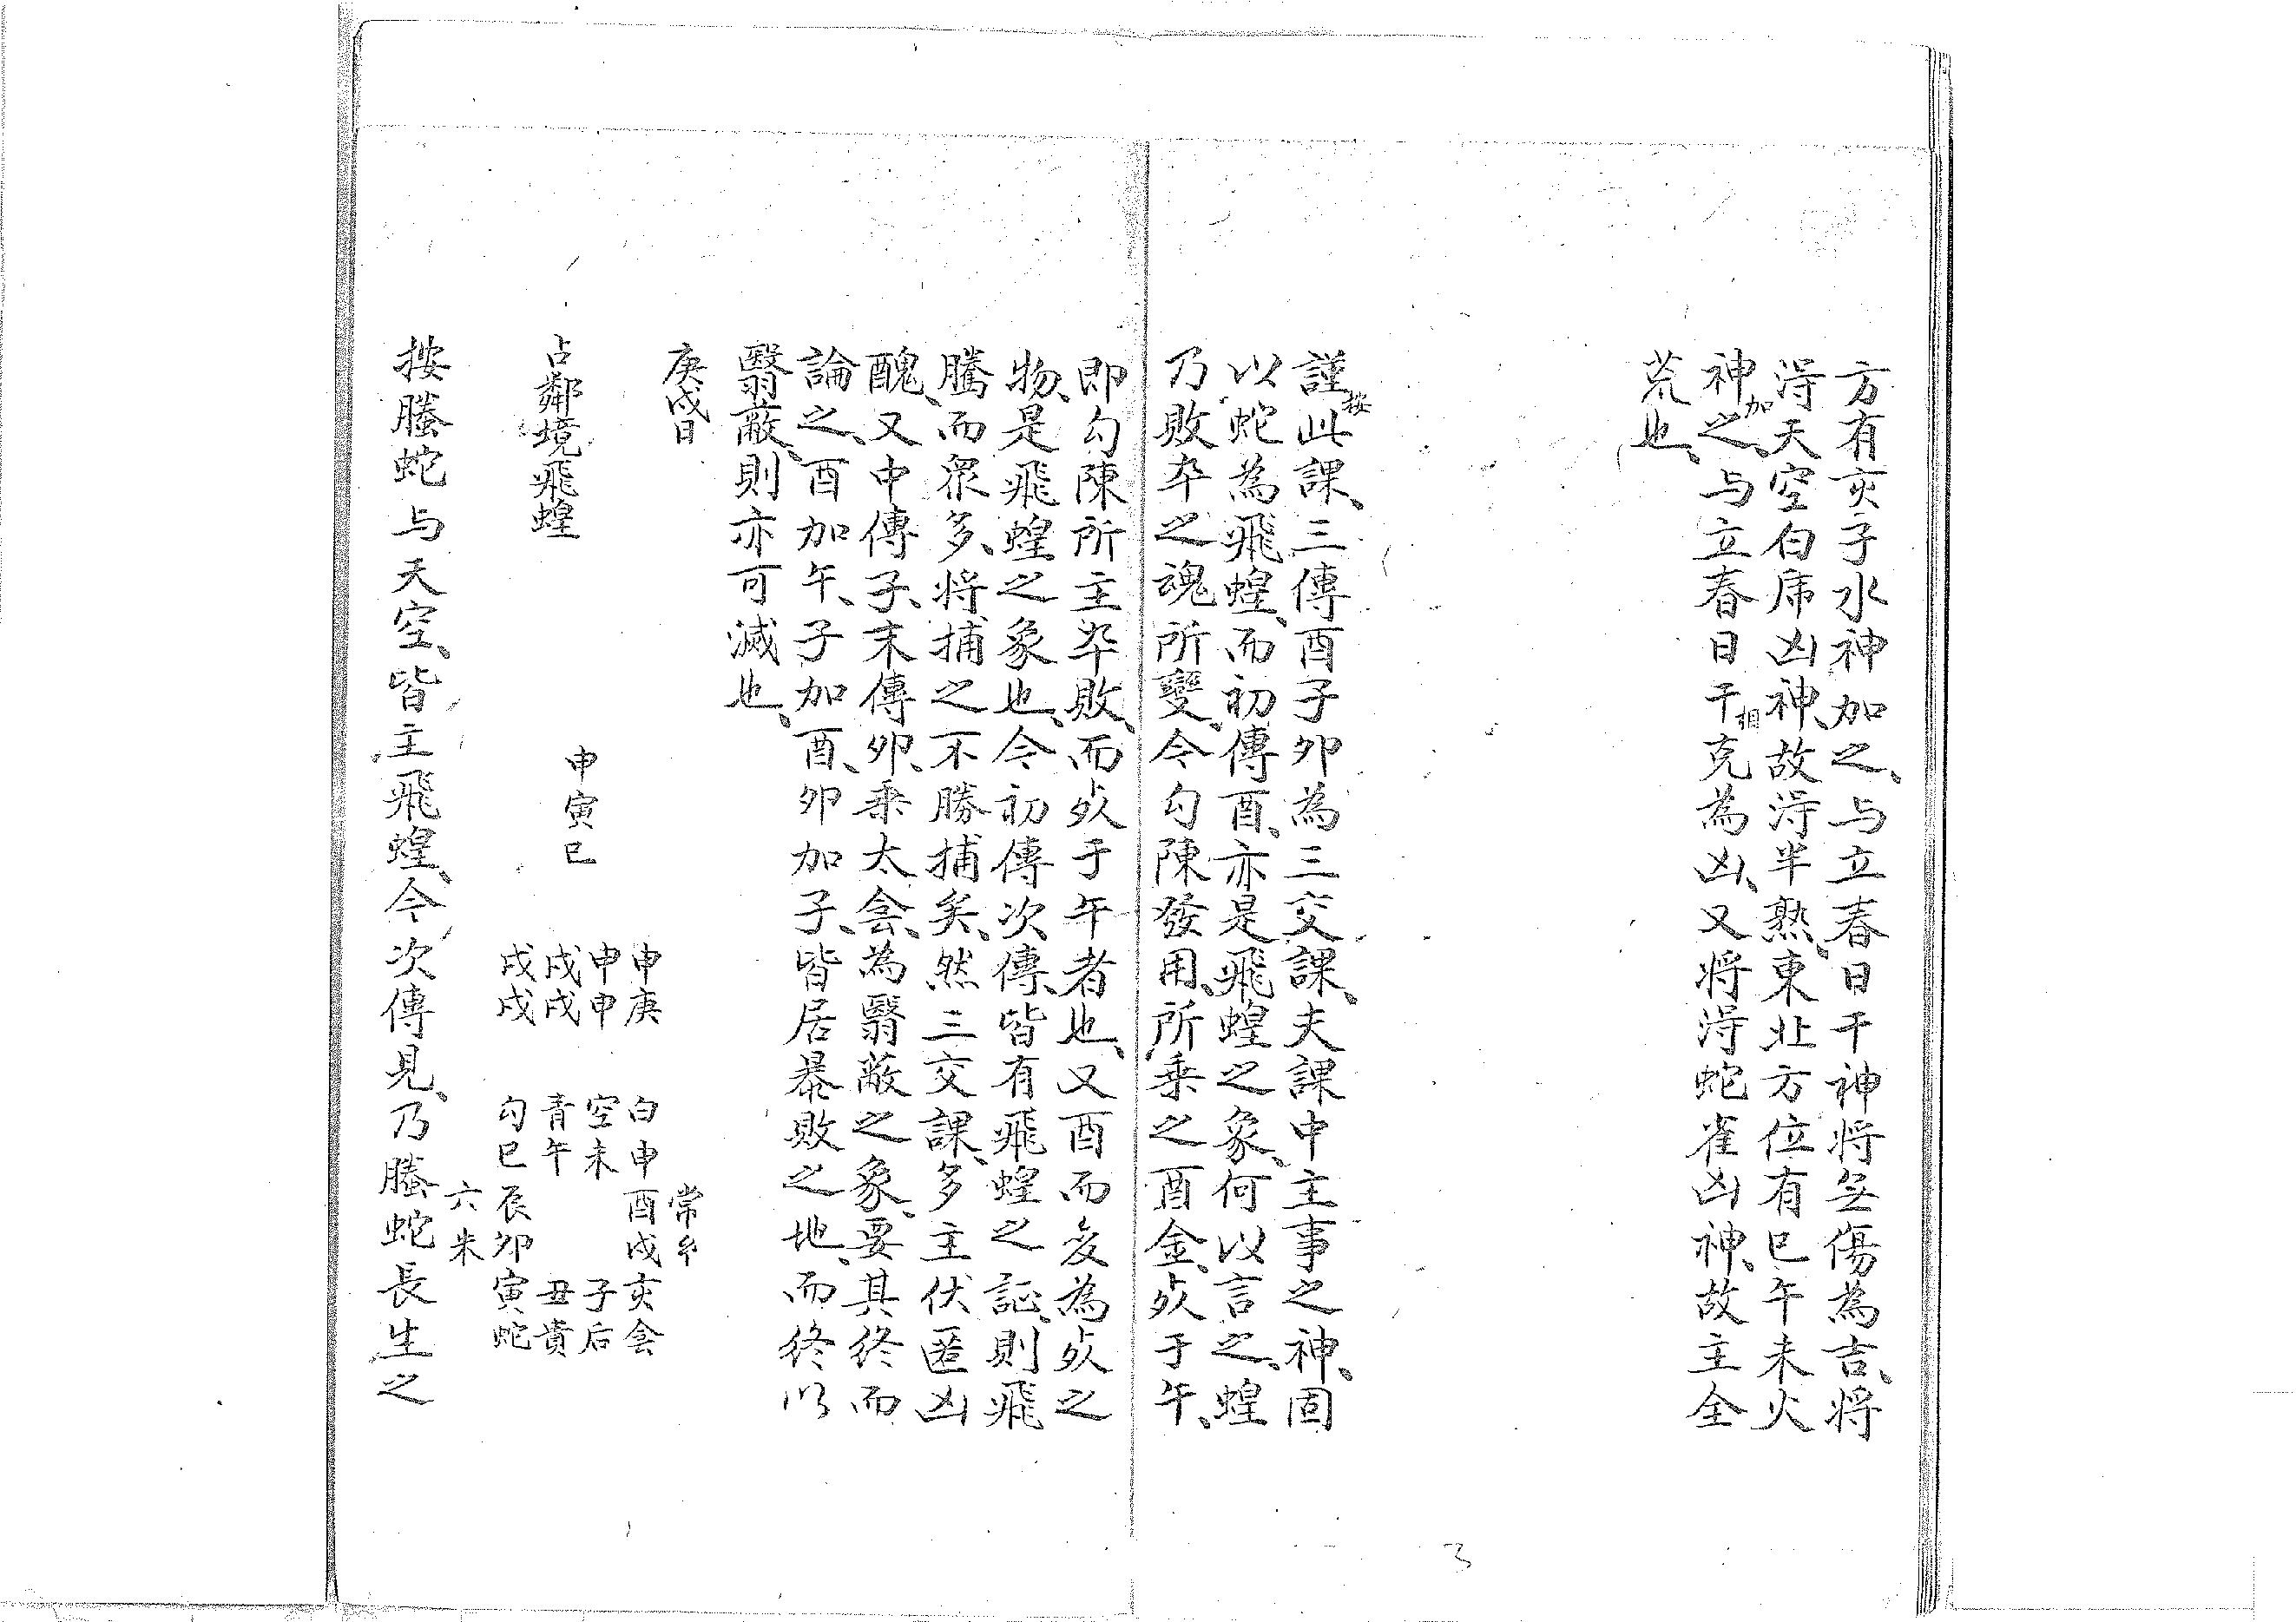 方有亥子水神加之、与立春日干神将無傷為吉、将
淂天空白虎凶神、故淂半熟、東北方位有巳午未火
神加之、与立春日干相克為凶、又将淂蛇雀凶神、故主全
荒也、
謹按此課、三傳酉子卯為三交課、夫課中主事之神、固
以蛇為飛蝗、而初傳酉、亦是飛蝗之象、何以言之、蝗
乃敗卒之魂所變、今勾陳發用、所乘之酉金、死于午、
即勾陳所主卒敗、而死于午者也、又酉而変為死之
物、是飛蝗之象也、今初傳次傳、皆有飛蝗之証、則飛
騰而眾多、将捕之不勝捕矣、然三交課、多主伏匿凶
醜、又中傳子、末傳卯、乘太陰、為翳蔽之象、要其終而
論之、酉加午、子加酉、卯加子、皆居暴敗之地、而終以
翳蔽、則亦可滅也、
庚戌日
占鄰境飛蝗
申寅巳
申庚
申申
戌戌
戌戌
常
白申酉戌亥陰
空未 子后
青午 丑貴
勾巳辰卯寅蛇
六朱
按螣蛇与天空、皆主飛蝗、今次傳見、乃螣蛇長生之
3